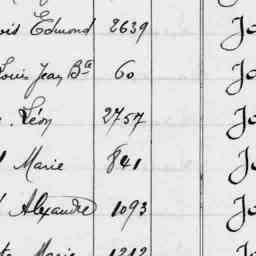 Edmond 2639 Jo
Louis Jean Bᵗᵉ 60 Jo
Léon 2757 Jo
Marie 841 Jo
Alexandre 1093 Jo
Marie 1212 Jo